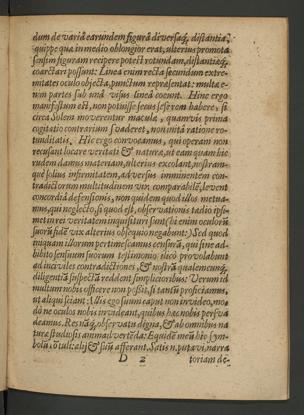 dum de variâ earundem figurâ diversaq́, distantia,
quippe qua in medio oblongior erat, ulterius promota
sensim figuram recipere potest rotundam, distantiæq́,
coarctari possunt: Linea enim recta secundum extre-
mitates oculo objecta, punctum repræsentat: multa e-
nim partes sub unâ visus lineâ coeunt. Hinc ergo
manifestum est, non potuisse sese rem habere, si
circa Solem moverentur macula, quamvis prima
cogitatio contrarium suaderet, non initâ ratione ro-
tunditatis. Hic ergo convocamus, qui operam non
recusant locare veritati & naturæ, ut eam quam hic
rudem damus materiam, ulterius excolant, nostram-
que solius infirmitatem, adversus imminentem con-
tradictiorum multitudinem vix comparabilē, levent
concordiâ defensionis, non quidem quod illos metua-
mus, qui neglecto, si quod est, observationis tadio ips-
met in rei veritatem inquisituri sunt (bi enim oculorū
suorū fide vix alterius obsequio negabunt) sed quod
iniquam illorum pertimescamus censurā, qui sine ad-
hibito sensuum suorum testimonio, sicco provolabunt
ad inciviles contradictiones, & nostrā qualemcunq́
diligentiā suspectā reddent simplicioribus: Verum id
multum nobis officere non possit, si tantū proficiamus,
ut aliqui sciant: Illis ego suum caput non invideo, mo-
dò ne oculos nobis invideant, quibus hæc nobis persva
deamus. Res nāq́, observatu digna, & ab omnibus na
turæ studiosis animadvertēda: Equidē meū hîc sym-
bolū, cōtuli: alij & suū afferant. Satis n. putavi, narra
D 2 toriam de-